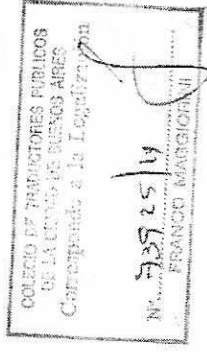 COLEGIO DE TRADUCTORES PUBLICOS
DE LA CIUDAD DE BUENOS AIRES
Corresponde a la Legalización
Nº 73925/14
FRANCO MAGGIORINI